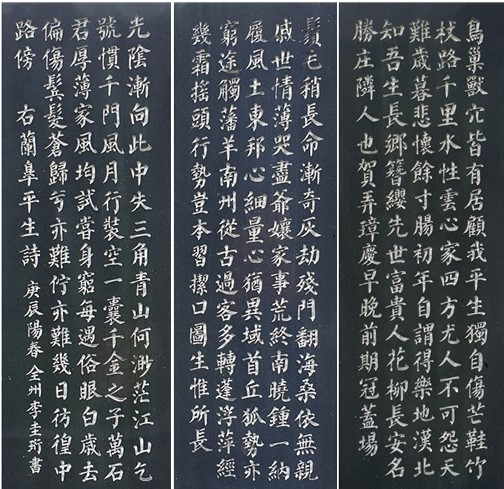 鳥巢獸穴皆有居顧我平生獨自傷芒鞋竹
杖路千里水性雲心家四方尤人不可怨天
難歲暮悲懷餘寸腸初年自謂得樂地漢北
知吾生長鄉簪纓先世富貴人花柳長安名
勝庄隣人也賀弄璋慶早晚前期冠蓋場
毛稍長命漸奇灰劫殘門翻海桑依無親
戚世情薄哭盡爺孃家事荒終南曉鍾一納
履風土東邦心細量心猶異域首丘狐勢亦
窮途觸藩羊南州從古過客多轉蓬浮萍經
幾霜搖頭行勢豈本習口圖生惟所長
光陰漸向此中失三角青山何渺茫江山乞
號慣千門風月行裝空一囊千金之子萬石
君厚薄家風均試嘗身窮每遇俗眼白歲去
偏傷鬢髮蒼歸兮亦難佇亦難幾日彷徨中
路傍 右蘭皐平生詩 庚辰陽春 全州李圭珩書